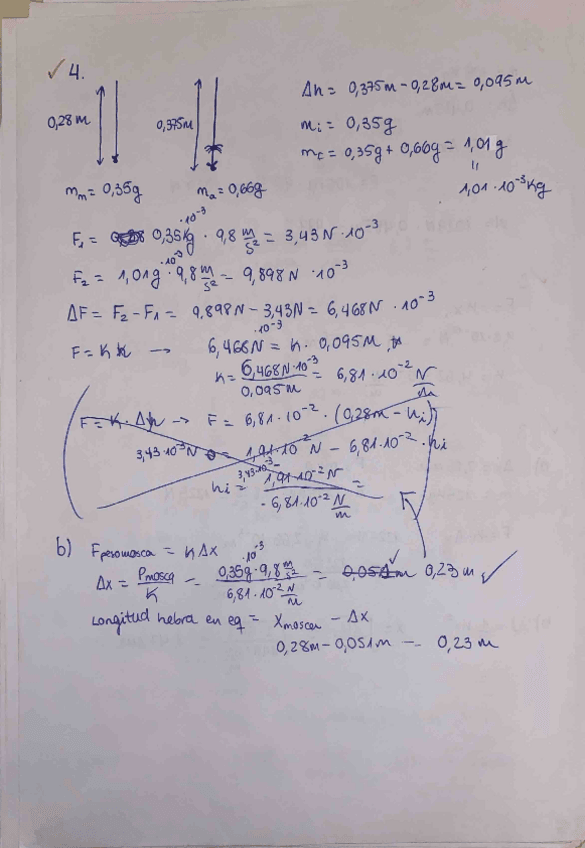 ✓ 4.
0,28m
0,375m
Δh = 0,375m - 0,28m = 0,095m
m i = 0,35g
m c = 0,35g + 0,66g = 1,01 g
"
1,01·10⁻³Kg
m m = 0,35g
m a = 0,66g
F₁ = 0,35Kg ·10⁻³ · 9,8 m/s² = 3,43 N·10⁻³
F₂ = 1,01g ·10⁻³ · 9,8 m/s² = 9,898 N ·10⁻³
ΔF = F₂ - F₁ = 9,898N - 3,43N = 6,468N ·10⁻³
F = K → 6,468N ·10⁻³ = K · 0,095m
K = 6,468N·10⁻³ / 0,095m = 6,81·10⁻² N/m
F = K · Δh → F = 6,81·10⁻² · (0,28m - hi)
3,43·10⁻³N = 1,91·10⁻² N - 6,81·10⁻² · hi
hi = 3,43·10⁻³ - 1,91·10⁻² N / -6,81·10⁻² N/m =
F
b) Fpesomosca = K Δx
Δx = Pmosca / K = 0,35g ·10⁻³ · 9,8 m/s² / 6,81·10⁻² N/m = 0,051m 0,23 m ✓
Longitud hebra en eq = Xmosca - Δx
0,28m - 0,051m = 0,23 m